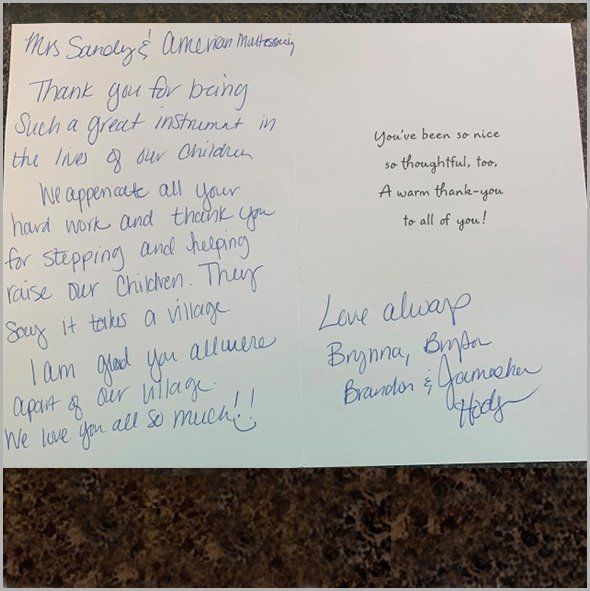 Mrs Sandy & American Montessori
Thank you for being
Such a great instrumnt in
the lives of our Children.
We appericate all your
hard work and thank you
for stepping and helping
raise our Children. They
say it takes a village.
I am glad you all were
apart of our village.
We love you all so much!!
You've been so nice
so thoughtful, too,
A warm thank-you
to all of you!
Love always
Brynna,
Brandon &